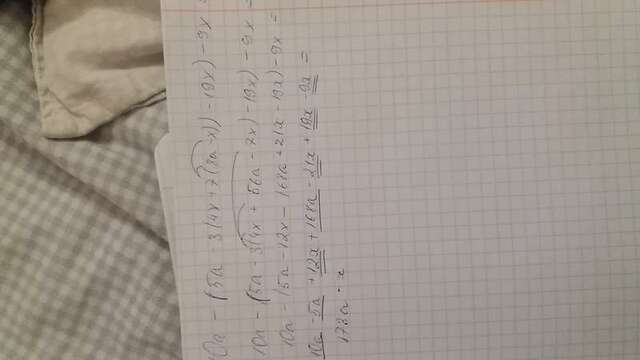 10a - (5a - 3(4x + 7(8a - x)) - 19x) - 9x =
10a - (5a - 3(4x + 56a - 7x) - 19x) - 9x =
10a - (5a - 12x - 168a + 21x - 19x) - 9x =
10a - 5a + 12x + 168a - 21x + 19x - 9x =
173a - x